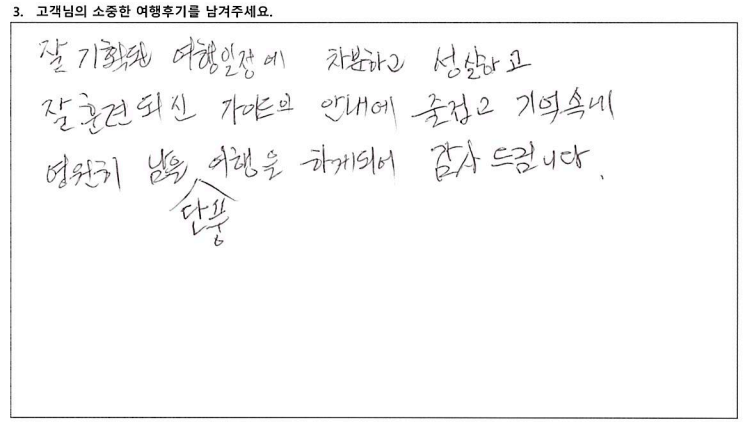 3. 고객님의 소중한 여행후기를 남겨주세요.
잘 기획된 여행일정에 차분하고 성실하고
잘 훈련되신 가이드의 안내에 즐겁고 기억속에
영원히 남을 여행을 하게되어 감사드립니다.
단풍